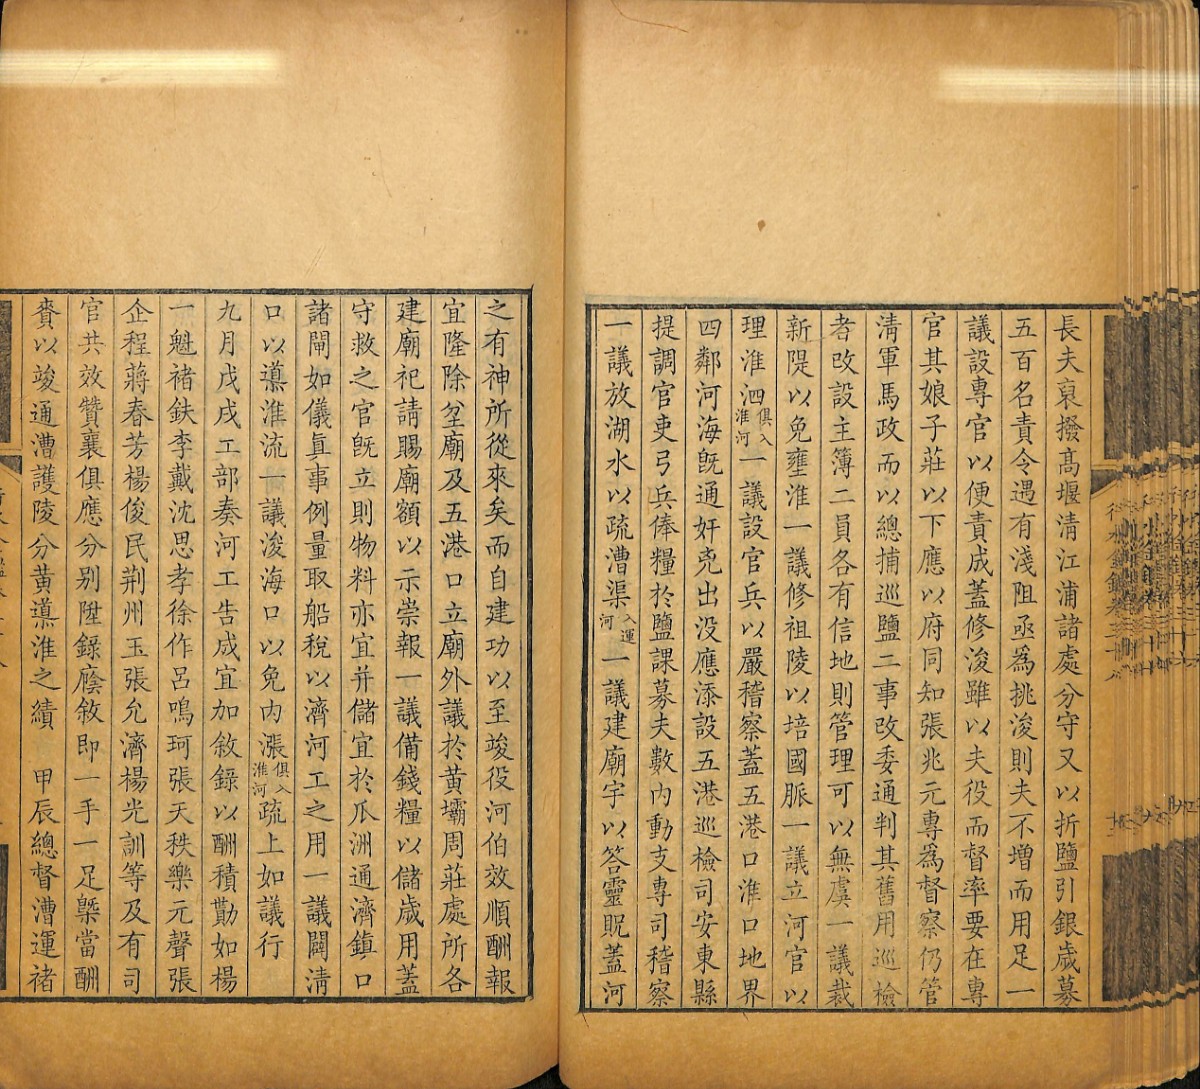 長夫裒撥髙堰清江浦諸處分守又以折鹽引銀歲募
五百名責令遇有淺阻亟為挑浚則夫不增而用足一
議設專官以便責成蓋修浚雖以夫役而督率要在專
官其娘子莊以下應以府同知張兆元專為督察仍管
清軍馬政而以總捕巡鹽二事改委通判其舊用巡檢
者改設主簿二員各有信地則管理可以無虞一議裁
新隄以免壅淮一議修祖陵以培國脈一議立河官以
理淮泗俱入淮河一議設官兵以嚴稽察蓋五港口淮口地界
四鄰河海旣通奸宄出没應添設五港巡檢司安東縣
提調官吏弓兵俸糧於鹽課募夫數内動支專司稽察
一議放湖水以疏漕渠入運河一議建廟宇以答靈貺蓋河
之有神所從來矣而自建功以至竣役河伯效順酬報
宜隆除坌廟及五港口立廟外議於黄壩周莊處所各
建廟祀請賜廟額以示崇報一議備錢糧以儲歲用蓋
守救之官旣立則物料亦宜并儲宜於瓜洲通濟鎮口
諸閘如儀真事例量取船稅以濟河工之用一議闢清
口以導淮流一議浚海口以免内漲俱入淮河疏上如議行
九月戊戌工部奏河工告成宜加敘錄以酬積勩如楊
一魁褚鈇李戴沈思孝徐作呂鳴珂張天秩樂元聲張
企程蔣春芳楊俊民荆州玉張允濟楊光訓等及有司
官共效贊襄俱應分别陞錄廕敘即一手一足槩當酬
賚以竣通漕護陵分黄導淮之績　甲辰總督漕運褚